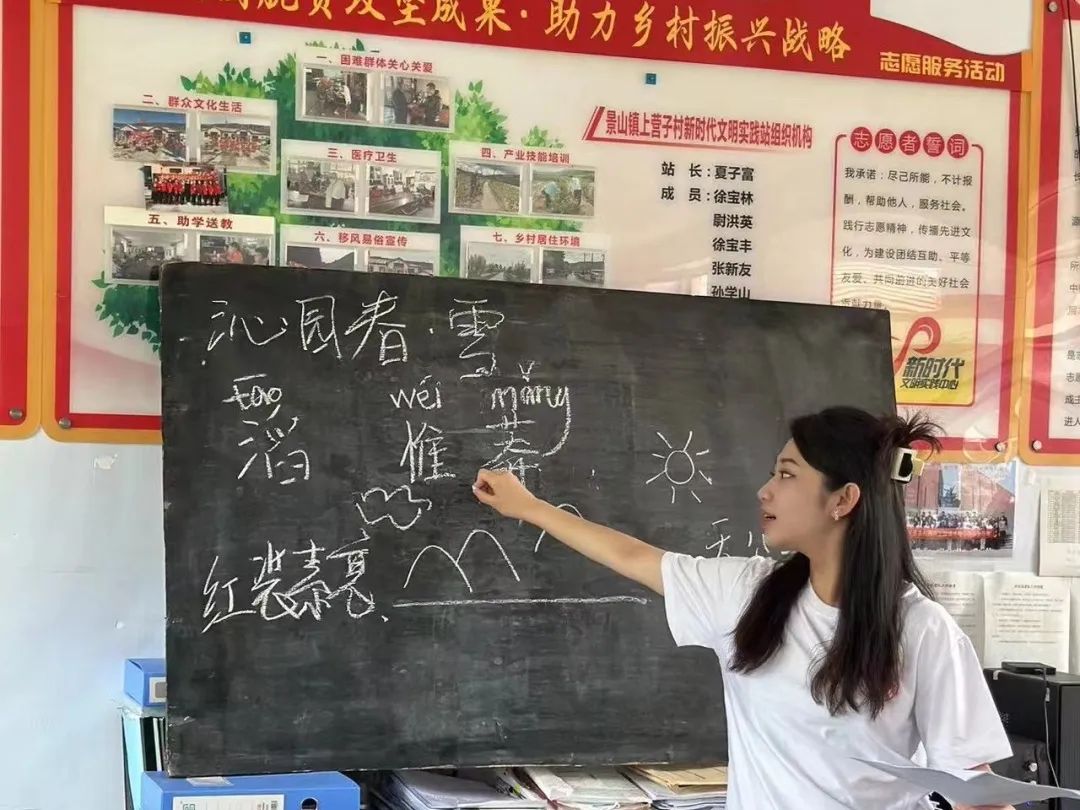 攻坚成果·助力乡村振兴战略
志愿服务活动
一、困难群体关心关爱
二、群众文化生活
三、医疗卫生
四、产业技能培训
五、助学送教
六、移风易俗宣传
七、乡村居住环境
景山镇上营子村新时代文明实践站组织机构
站 长：夏子富
成 员：徐宝林
尉洪英
徐宝丰
张新友
孙学山
志愿者誓词
我承诺：尽己所能，不计报
酬，帮助他人，服务社会。
践行志愿精神，传播先进文
化，为建设团结互助、平等
友爱、共同前进的美好社会
贡献力量
新时代
文明实践中心
沁园春·雪
tāo wéi mǎng
滔 惟 莽
红装素亮